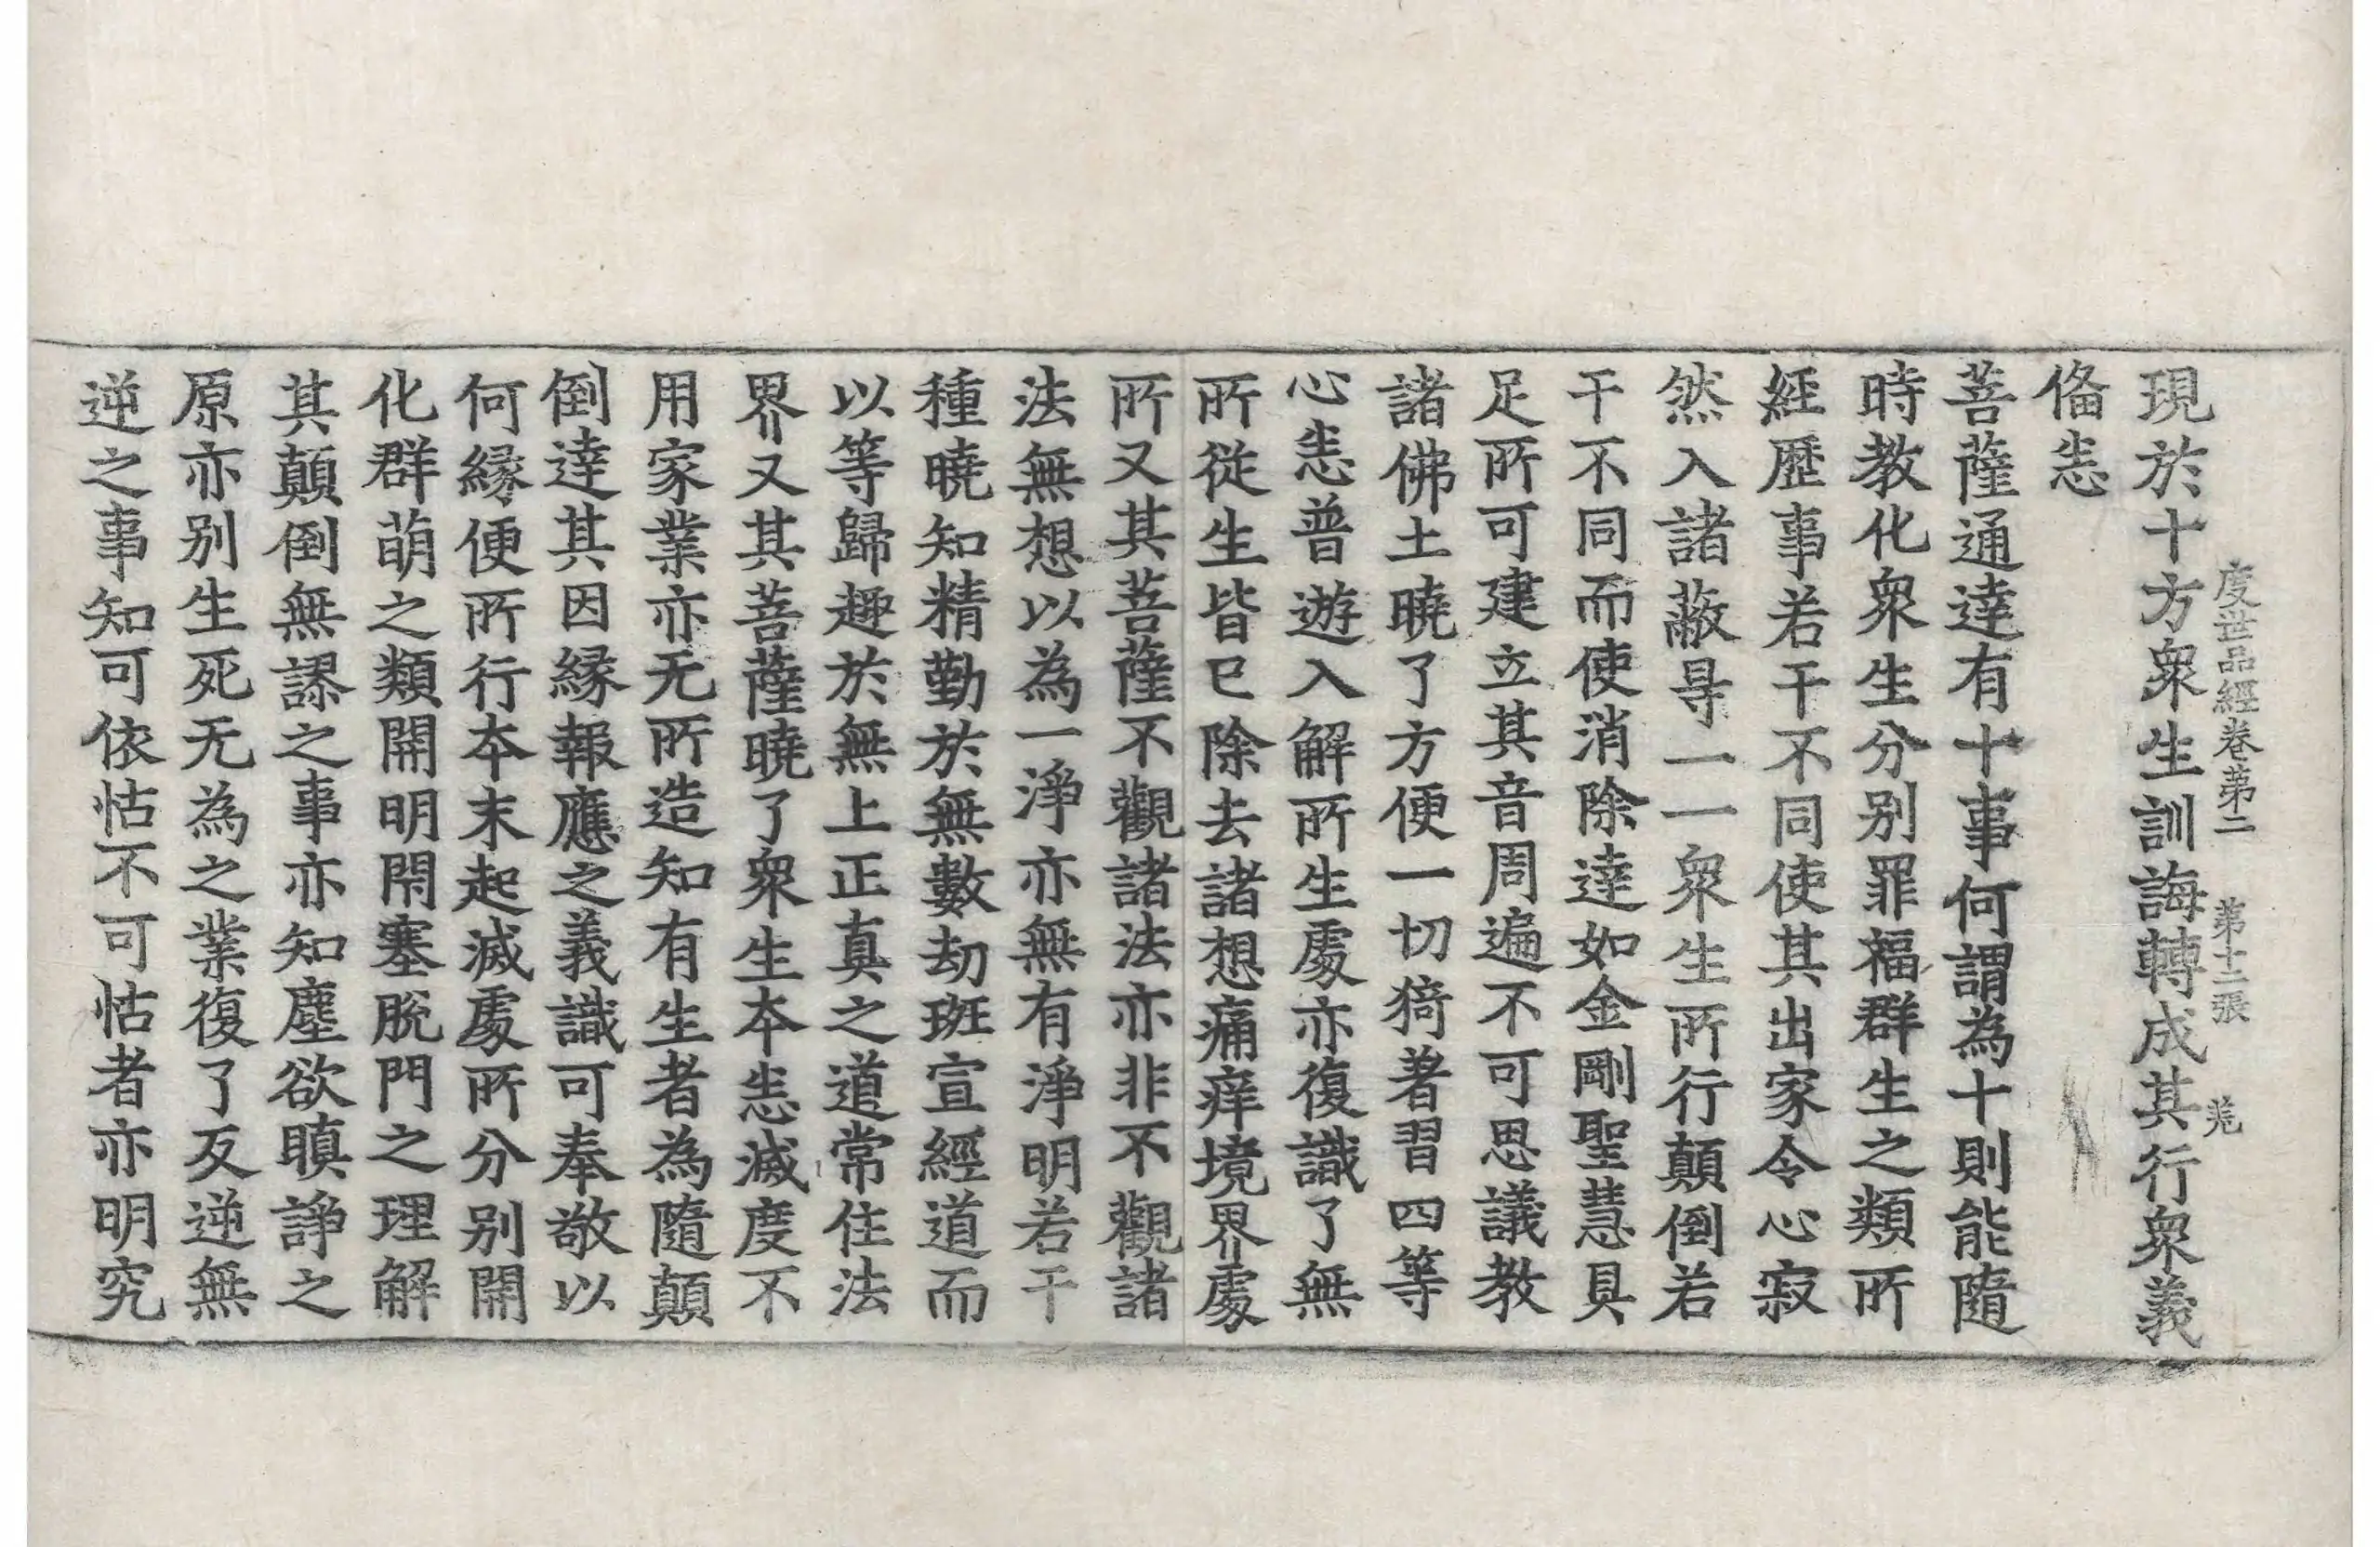 度世品經卷第二 第十二張 羌
現於十方衆生訓誨轉成其行衆義
俻恙
菩薩通達有十事何謂為十則能隨
時教化衆生分别罪福群生之類所
經歷事若干不同使其出家令心寂
然入諸蔽㝵一一衆生所行顛倒若
干不同而使消除達如金剛聖慧具
足所可建立其音周遍不可思議教
諸佛土曉了方便一切猗著習四等
心恙普遊入解所生處亦復識了無
所從生皆已除去諸想痛痒境界處
所又其菩薩不觀諸法亦非不觀諸
法無想以為一淨亦無有淨明若干
種曉知精勤於無數劫班宣經道而
以等歸趣於無上正真之道常住法
界又其菩薩曉了衆生夲恙滅度不
用家業亦无所造知有生者為隨顛
倒達其因緣報應之義識可奉敬以
何緣便所行夲末起滅處所分别開
化群萌之類開明閇塞脫門之理解
其顛倒無謬之事亦知塵欲瞋諍之
原亦别生死无為之業復了反逆無
逆之事知可依怙不可怙者亦明究